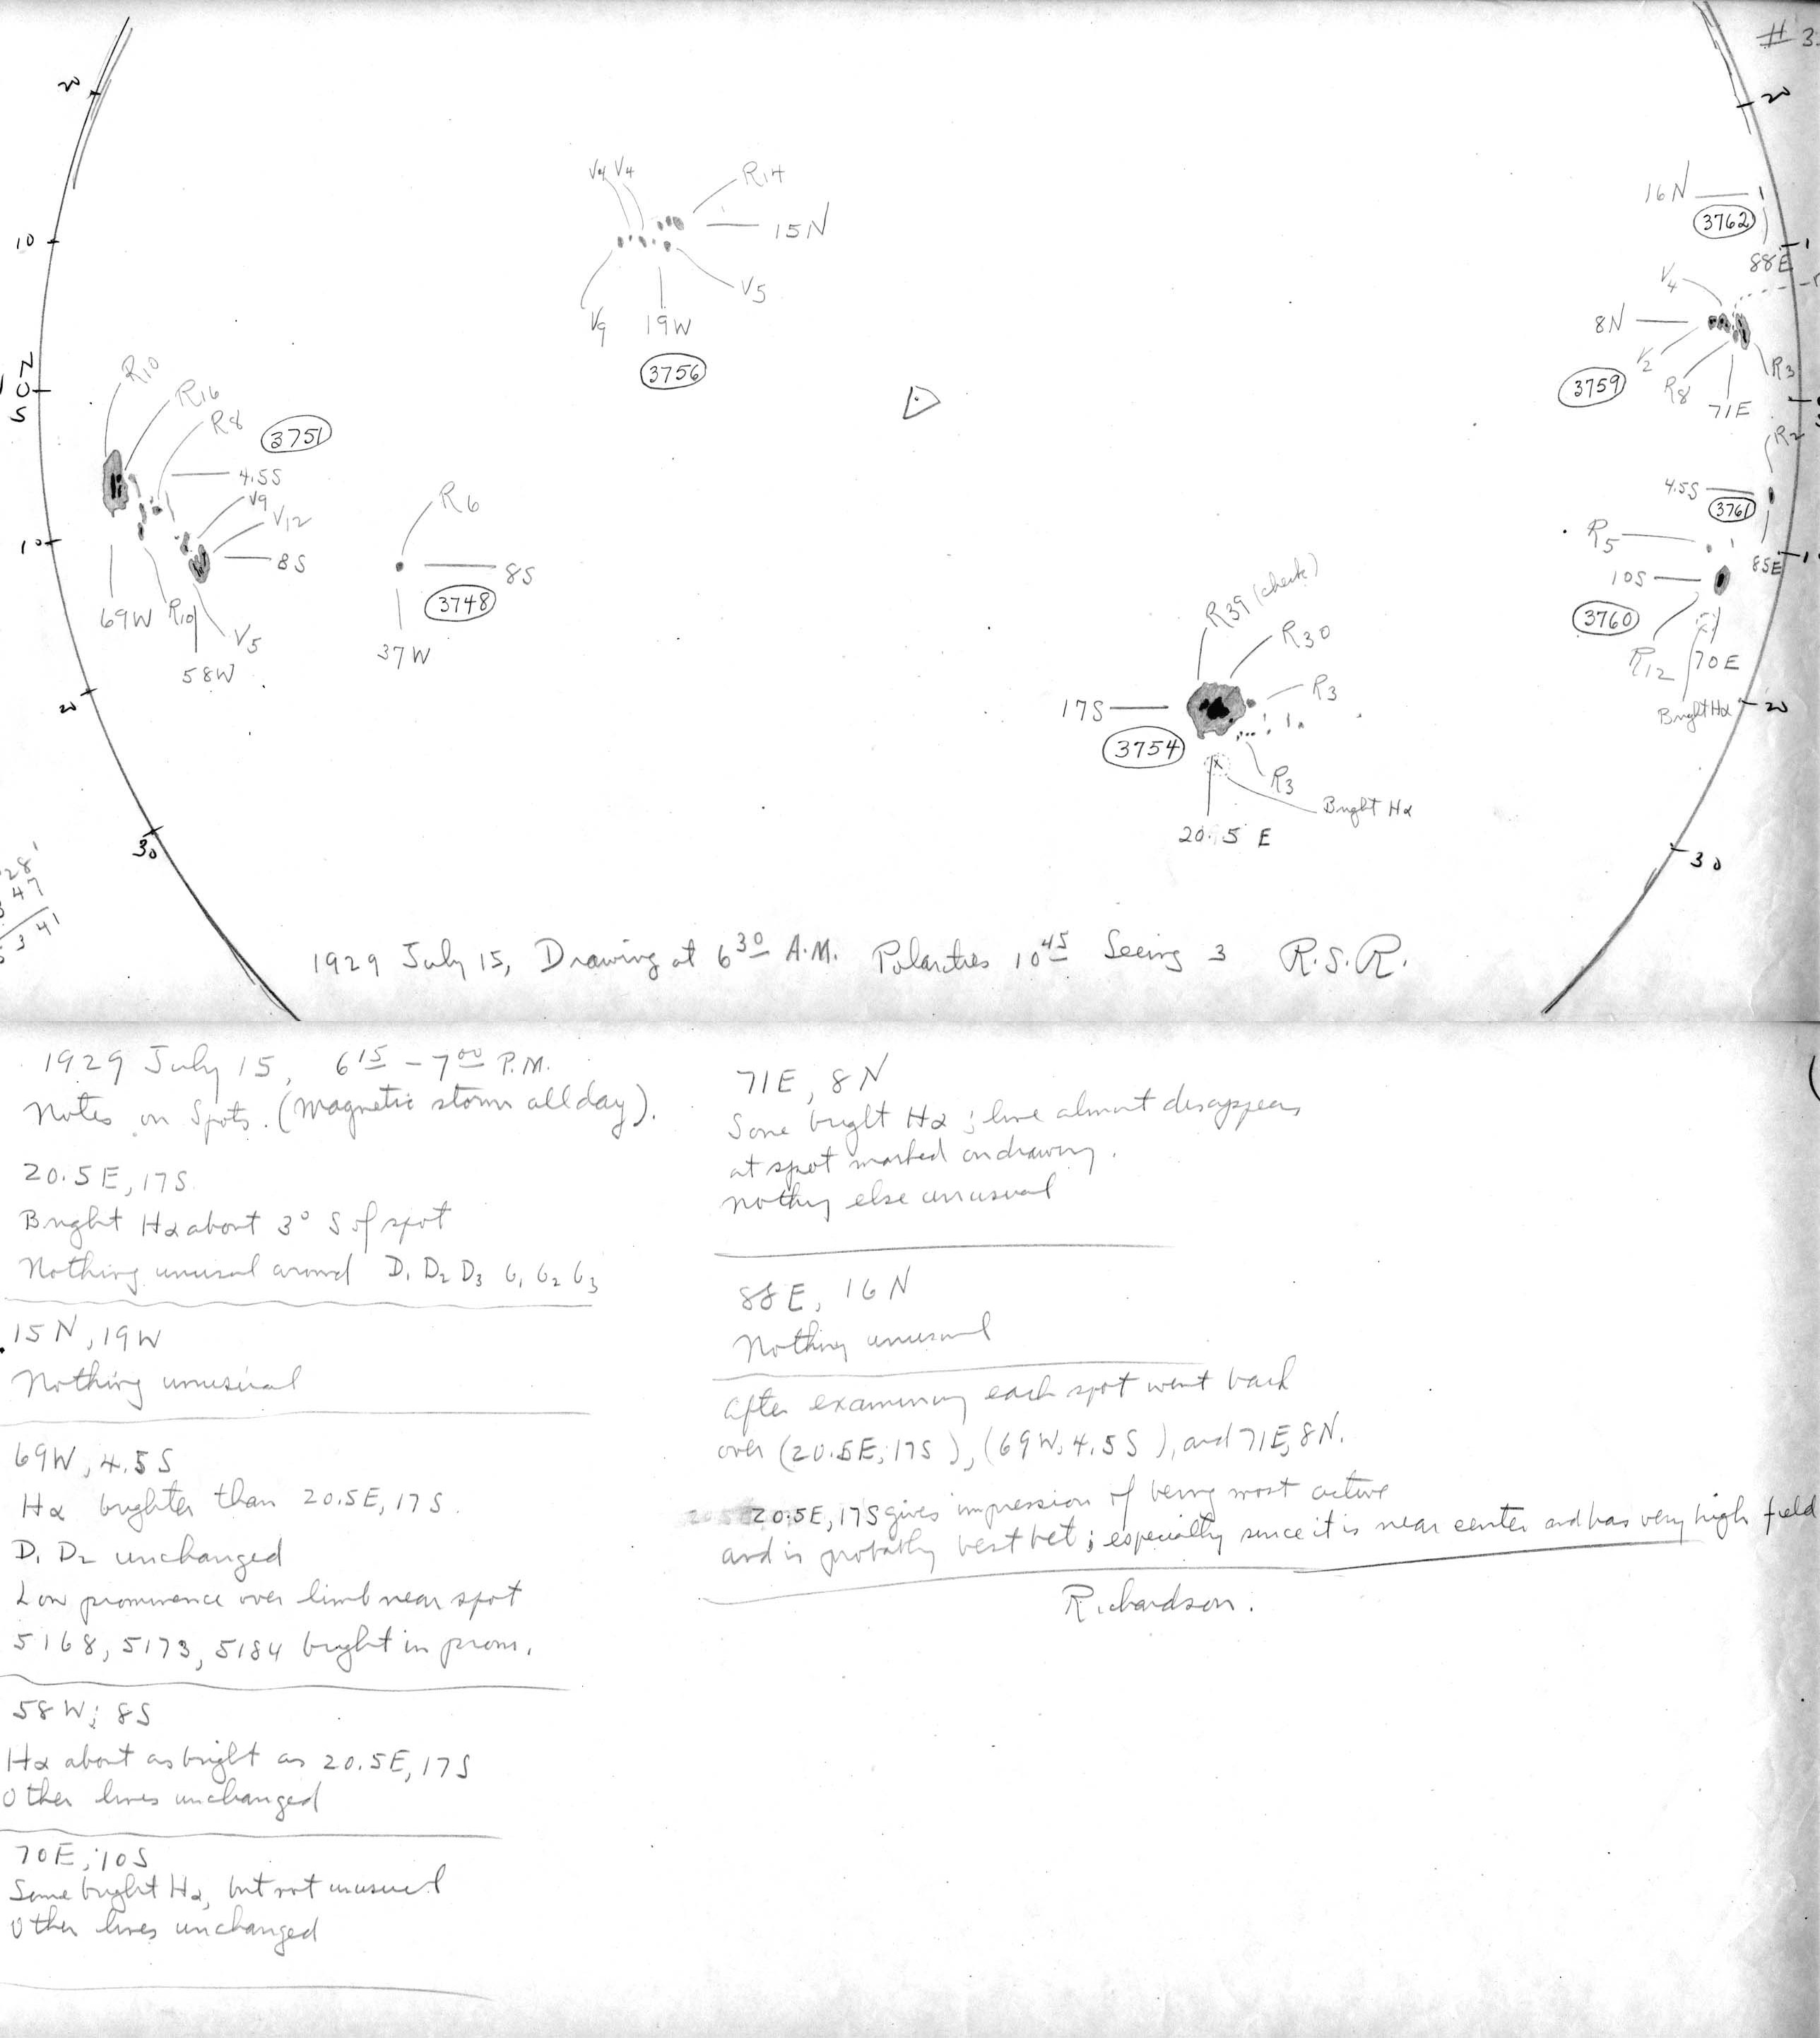 # 3.
20
20
V4 V4
R14
15N
V9
19W
V5
3756
10
16N
3762
88E
V4
8N
V2
3759
R8
71E
R3
N
0
S
R10
R16
R8
3751
4.5S
V9
V12
8S
10
69W
R10
V5
58W
R6
8S
3748
37W
R2
4.5S
3761
85E
R5
10S
3760
R12
70E
Bright Hα
R39 (check)
R30
R3
17S
3754
R3
Bright Hα
20.5 E
20
20
30
30
28'
47
3 41
1929 July 15, Drawing at 6 30 A.M. Polarities 10 45 Seeing 3 R.S.R.
1929 July 15, 6 15 - 7 00 P.M.
Notes on Spots. (Magnetic storm all day).
20.5E, 17S
Bright Hα about 3° S of spot
Nothing unusual around D1 D2 D3 b1 b2 b3
15N, 19W
Nothing unusual
69W, 4.5S
Hα brighter than 20.5E, 17S.
D1 D2 unchanged
Low prominence over limb near spot
5168, 5173, 5184 bright in prom.
58W; 8S
Hα about as bright as 20.5E, 17S
Other lines unchanged
70E, 10S
Some bright Hα, but not unusual
Other lines unchanged
71E, 8N
Some bright Hα; line almost disappears
at spot marked on drawing.
Nothing else unusual
88E, 16N
Nothing unusual
After examining each spot went back
over (20.5E, 17S), (69W, 4.5S), and 71E, 8N.
20.5E, 17S gives impression of being most active
and is probably best bet; especially since it is near center and has very high field
Richardson.